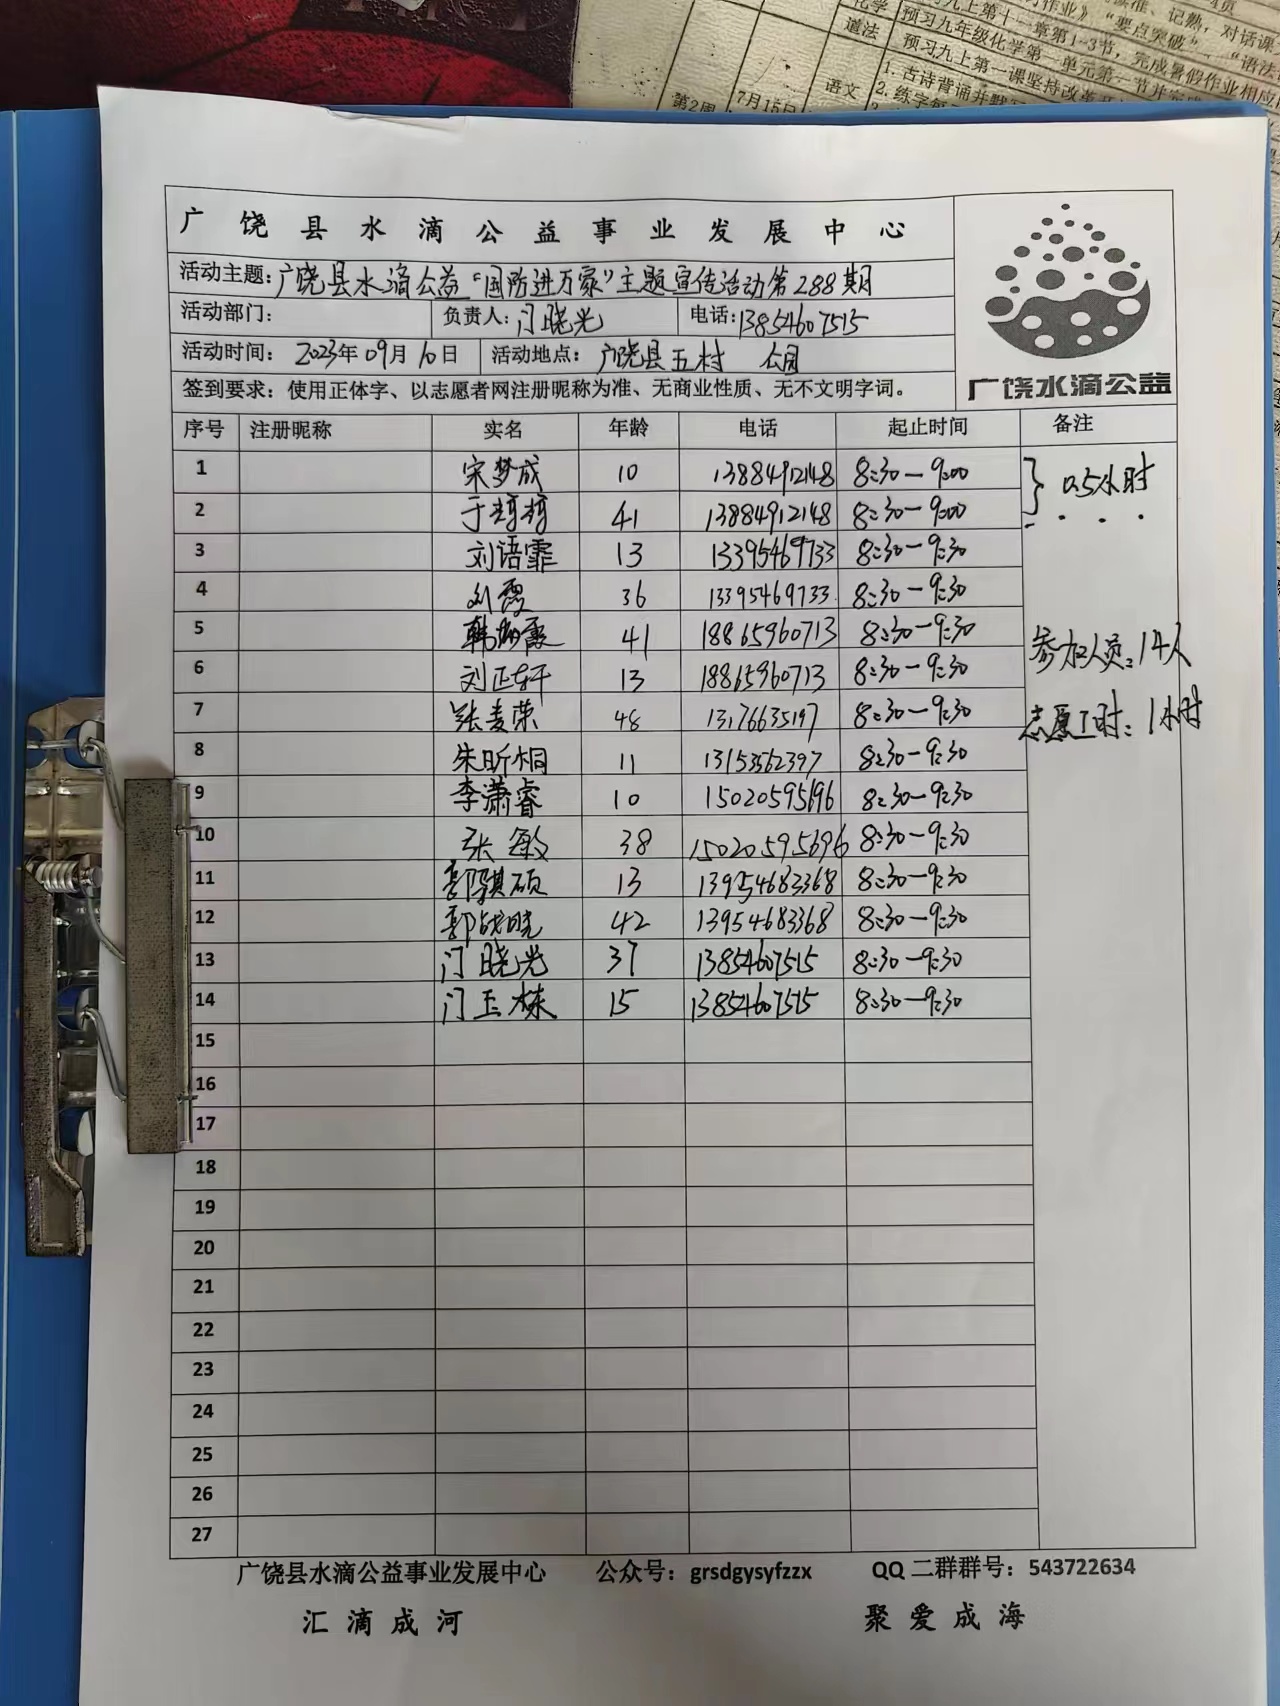 化学
道法
预习九年级化学第一单元第一节并完
预习九上第一课坚持改革开
语文
1. 古诗背诵并默写
2. 练字每
第2周
7月15日
广饶县水滴公益事业发展中心
活动主题：广饶县水滴公益“国防进万家”主题宣传活动第288期
活动部门： 负责人：门晓光 电话：13854607515
活动时间： 2023年09月10日 活动地点： 广饶县五村 公园
签到要求：使用正体字、以志愿者网注册昵称为准、无商业性质、无不文明字词。
广饶水滴公益
序号 注册昵称 实名 年龄 电话 起止时间 备注
1 宋梦成 10 13884912148 8:30—9:00 0.5小时
2 于 41 13884912148 8:30—9:00
3 刘语霏 13 13395469733 8:30—9:30
4 刘霞 36 13395469733 8:30—9:30
5 韩 霞 41 18865960713 8:30—9:30
参加人员：14人
6 刘正轩 13 18865960713 8:30—9:30
7 张麦荣 48 13176635197 8:30—9:30
志愿工时：1小时
8 朱昕桐 11 13153562397 8:30—9:30
9 李潇睿 10 15020595696 8:30—9:30
10 张敏 38 15020595696 8:30—9:30
11 郭骐硕 13 13954683368 8:30—9:30
12 郭 晓 42 13954683368 8:30—9:30
13 门晓光 37 13854607515 8:30—9:30
14 门玉栋 15 13854607515 8:30—9:30
15
16
17
18
19
20
21
22
23
24
25
26
27
广饶县水滴公益事业发展中心 公众号：grsdgysyfzzx QQ 二群群号：543722634
汇滴成河 聚爱成海